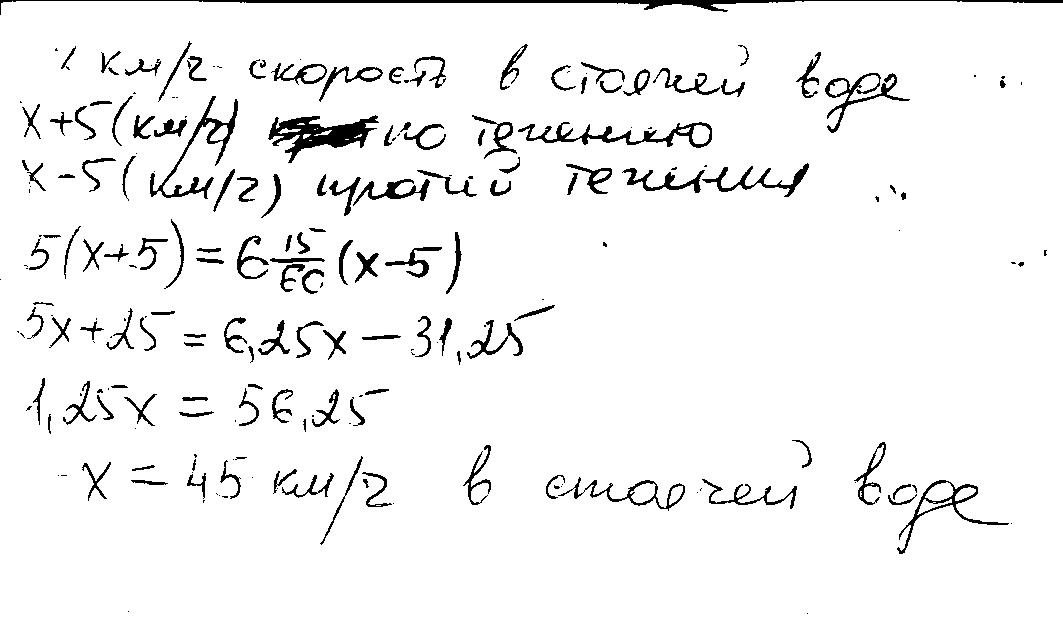 x км/ч скорость в стоячей воде
x+5(км/ч) по течению
x-5(км/ч) против течения
5(x+5)=6 15/60 (x-5)
5x+25=6,25x-31,25
1,25x=56,25
x=45 км/ч в стоячей воде